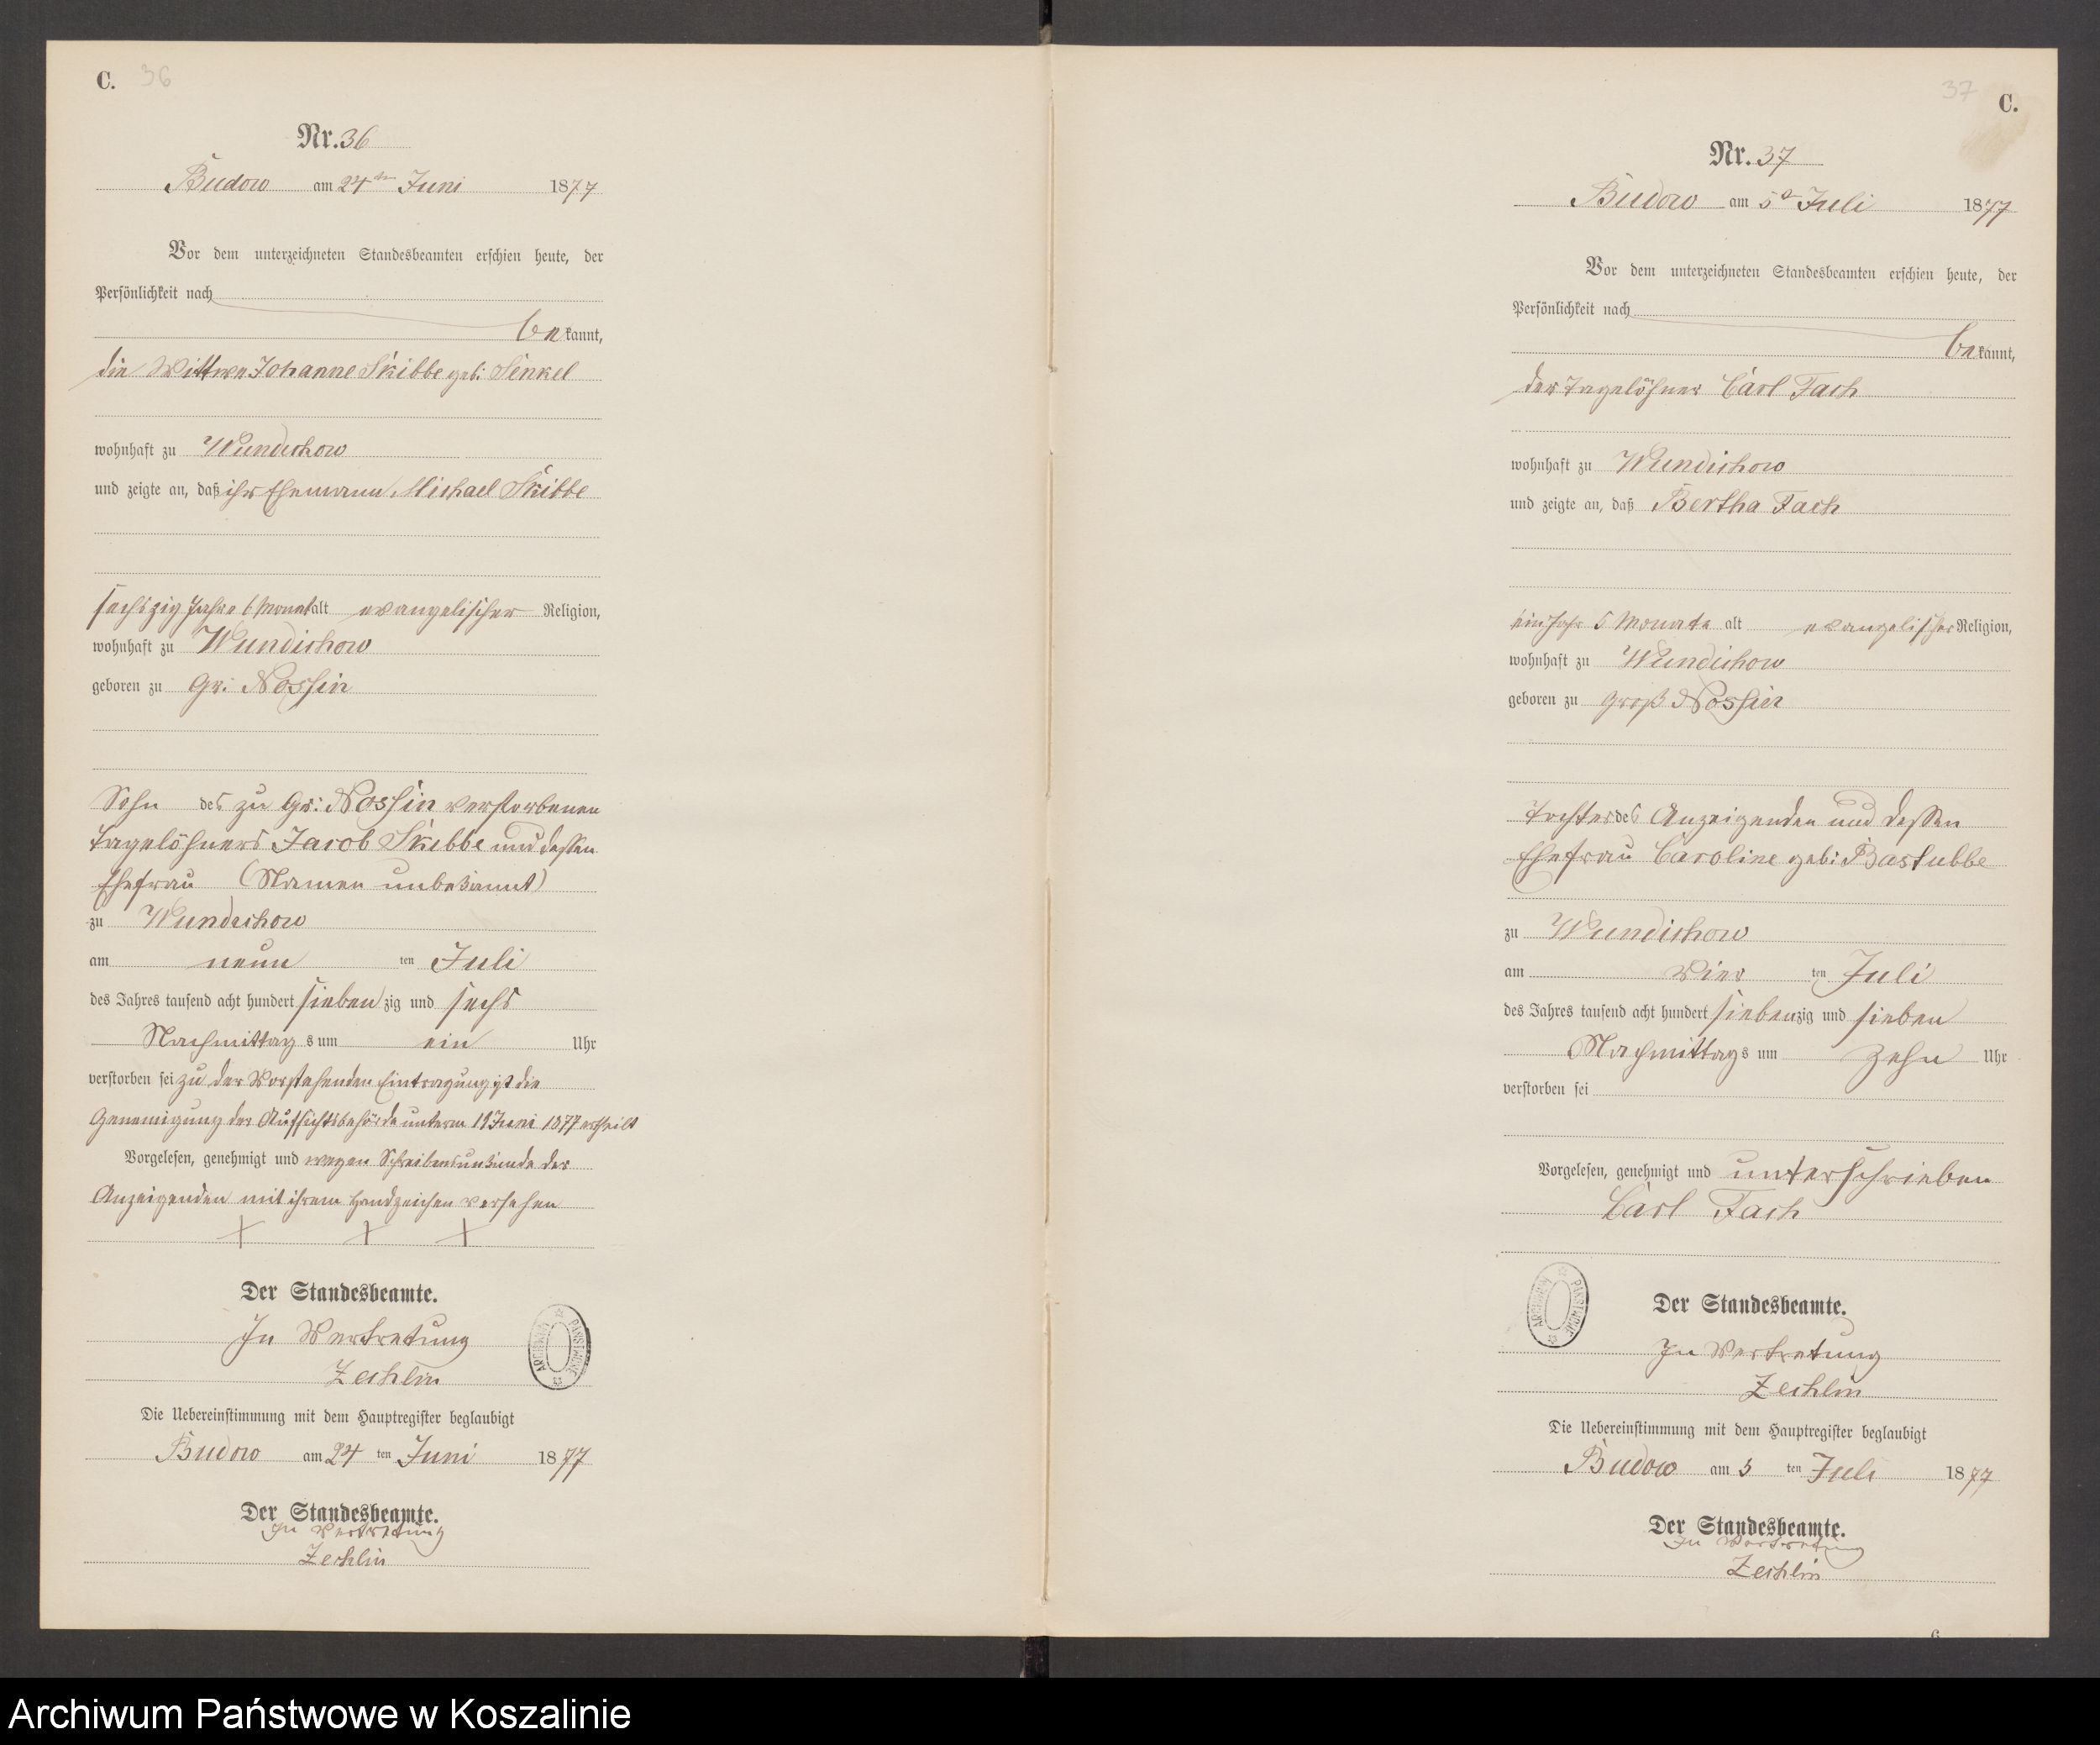 C. 36
Nr. 36
Budow am 24ten Juni 1877
Vor dem unterzeichneten Standesbeamten erschien heute, der
Persönlichkeit nach
bekannt,
die Wittwe Johanne Skibbe geb: Senkel
wohnhaft zu Wundichow
und zeigte an, daß ihr Ehemann Michael Skibbe
sechszig Jahre 6 Monat alt evangelischer Religion,
wohnhaft zu Wundichow
geboren zu Gr: Nossin
Sohn des zu Gr: Nossin verstorbenen
Tagelöhners Jacob Skibbe und dessen
Ehefrau (Namen unbekannt)
zu Wundichow
am neun ten Juli
des Jahres tausend acht hundert siebenzig und sechs
Nachmittags um ein Uhr
verstorben sei zu der Vorstehenden Eintragung ist die
Genemigung der Aufsichtsbehörde unterm 19 Juni 1877 ertheilt
Vorgelesen, genehmigt und wegen Schreibensunkunde der
Anzeigenden mit ihrem Handzeichen versehen
+ + +
Der Standesbeamte.
In Vertretung
Zechlin
ARCHIWUM PAŃSTWOWE
Die Uebereinstimmung mit dem Hauptregister beglaubigt
Budow am 24 ten Juni 1877
Der Standesbeamte.
In Vertretung
Zechlin
37 C.
Nr. 37
Budow am 5t Juli 1877
Vor dem unterzeichneten Standesbeamten erschien heute, der
Persönlichkeit nach
bekannt,
der Tagelöhner Carl Fach
wohnhaft zu Wundichow
und zeigte an, daß Bertha Fach
ein Jahr 5 Monate alt evangelischer Religion,
wohnhaft zu Wundichow
geboren zu Groß Nossin
Tochter des Anzeigenden und dessen
Ehefrau Caroline geb: Bastubbe
zu Wundichow
am vier ten Juli
des Jahres tausend acht hundert siebenzig und sieben
Nachmittags um zehn Uhr
verstorben sei
Vorgelesen, genehmigt und unterschrieben
Carl Fach
ARCHIWUM PAŃSTWOWE
Der Standesbeamte.
In Vertretung
Zechlin
Die Uebereinstimmung mit dem Hauptregister beglaubigt
Budow am 5 ten Juli 1877
Der Standesbeamte.
In Vertretung
Zechlin
Archiwum Państwowe w Koszalinie